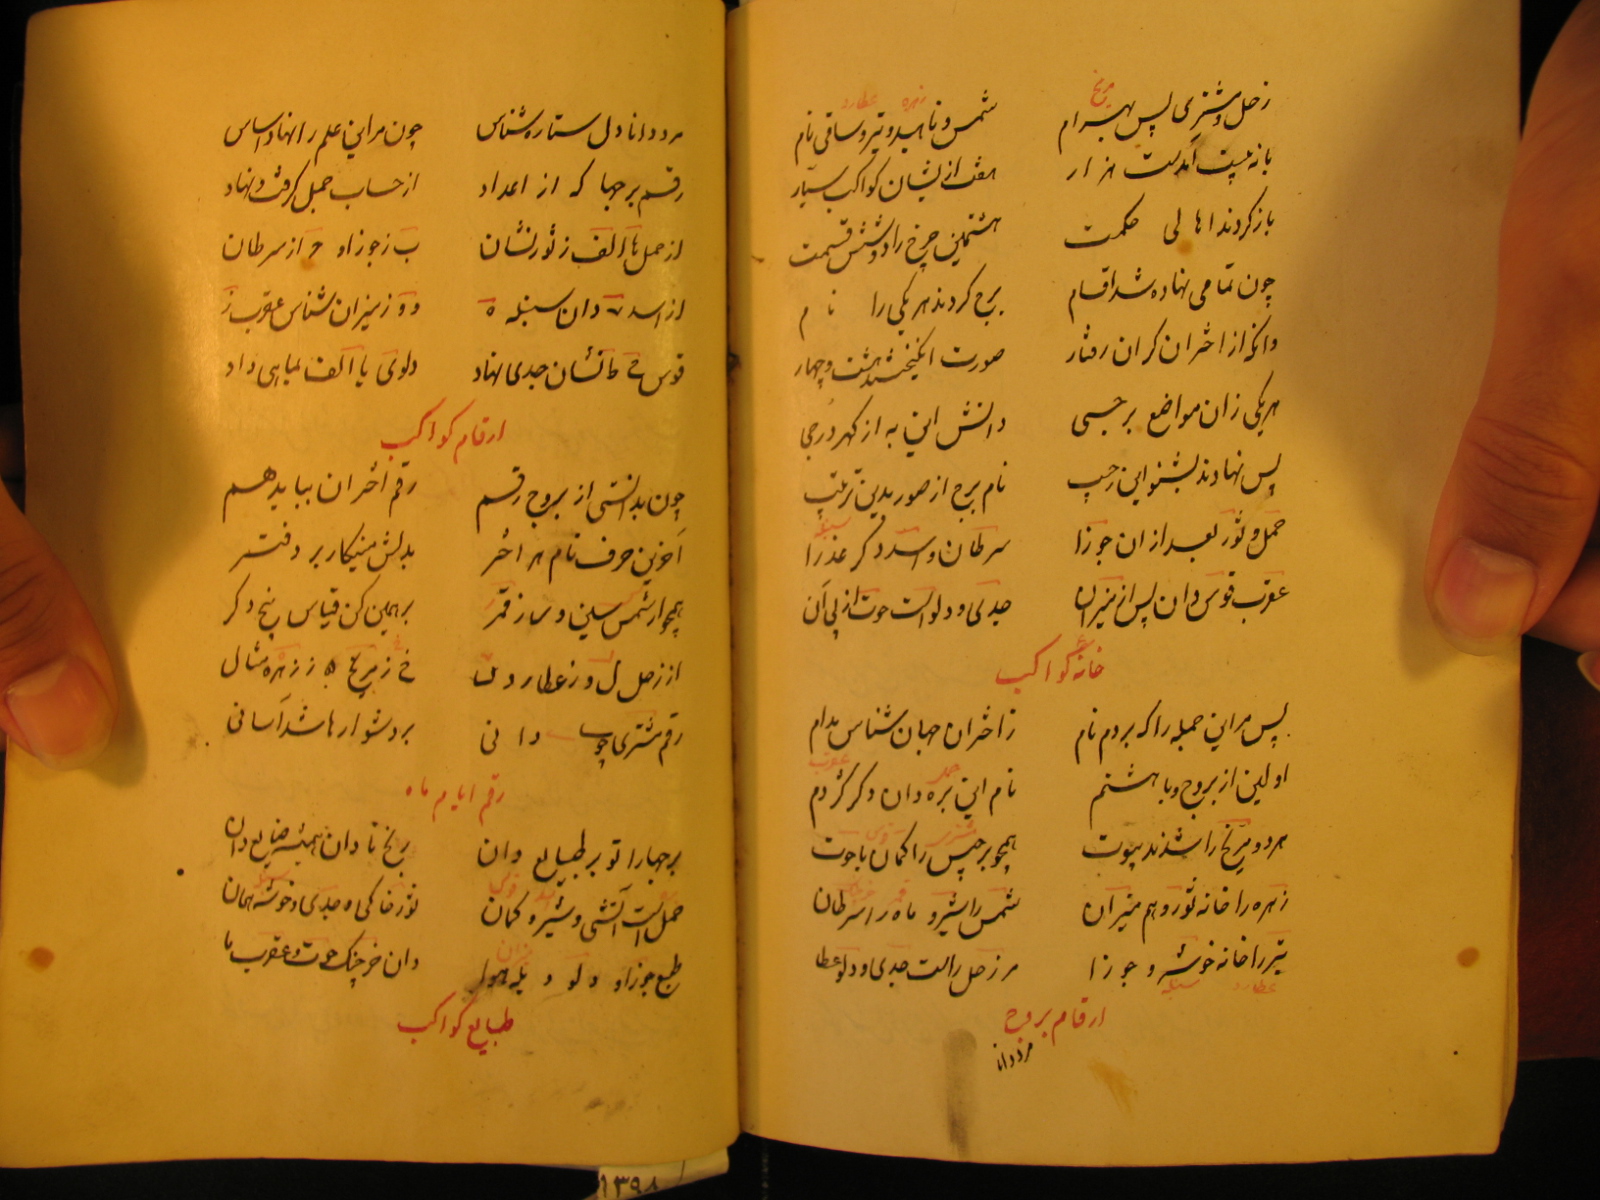 زحل و مشتری پس بهرام شمس و ناهید و تیر و ساقی نام
مریخ زهره عطارد
هفت از ایشان کواکب سیار
باز کردند اهالی حکمت هشتمین چرخ را دوشش قسمت
چون تمامی نهاده شد اقسام برج کردند هر یکی را نام
وانکه از اختران گران رفتار صورت انگیختند هشت و چهار
هر یکی زان مواضع برجی دانش این به از گهر درجی
پس نهادند بشنو این ز حسیب نام برج از صور بدین ترتیب
حمل و ثور بعد از آن جوزا سرطان و اسد دگر عذرا
سنبله
عقرب قوس دان پس از میزان جدی و دلو است حوت از پی آن
خانه کواکب
پس مر این جمله را که بردم نام ز اختران جهان شناس مدام
اولین از بروج و با هشتم نام این بره دان و دگر کژدم
حمل عقرب
هر دو مریخ را شدند بیوت همچو برجیس را کمان با حوت
مشتری قوس
زهره را خانه ثور و هم میزان شمس را شیر و ماه را سرطان
قمر
تیر را خانه خوشه و جوزا مر زحل راست جدی و دلو عطا
عطارد سنبله
ارقام بروج
مرد دانا
مرد دانا دل ستاره شناس چون مر این علم را نهاد اساس
رقم برجها که از اعداد از حساب جمل گرفت و نهاد
از حمل ها الف ز ثور نشان ب ز جوزا و ج از سرطان
از اسد د دان سنبله ه و و ز میزان شناس عقرب ز
قوس ح ط نشان جدی نهاد دلو ی یا الف بماهی داد
ارقام کواکب
چون بدانستی از بروج رقم رقم اختران بباید هم
آخرین حرف نام هر اختر بدلش مینگار بر دفتر
همچو از شمس سین و را ز قمر بر همین کن قیاس پنج دگر
از زحل ل و ز عطارد د خ ز مریخ ه ز زهره مثال
رقم مشتری چو دانی بر دشوارها شد آسانی
رقم ایام ماه
برجها را تو بر طبایع دان
حمل است آتشی و شیر و کمان ثور خاکی و جدی و خوشه همان
اسد قوس سنبله
طبع جوزا و دلو و پله هوا دان خرچنگ حوت و عقرب ما
میزان
طبایع کواکب
۱۳۹۸